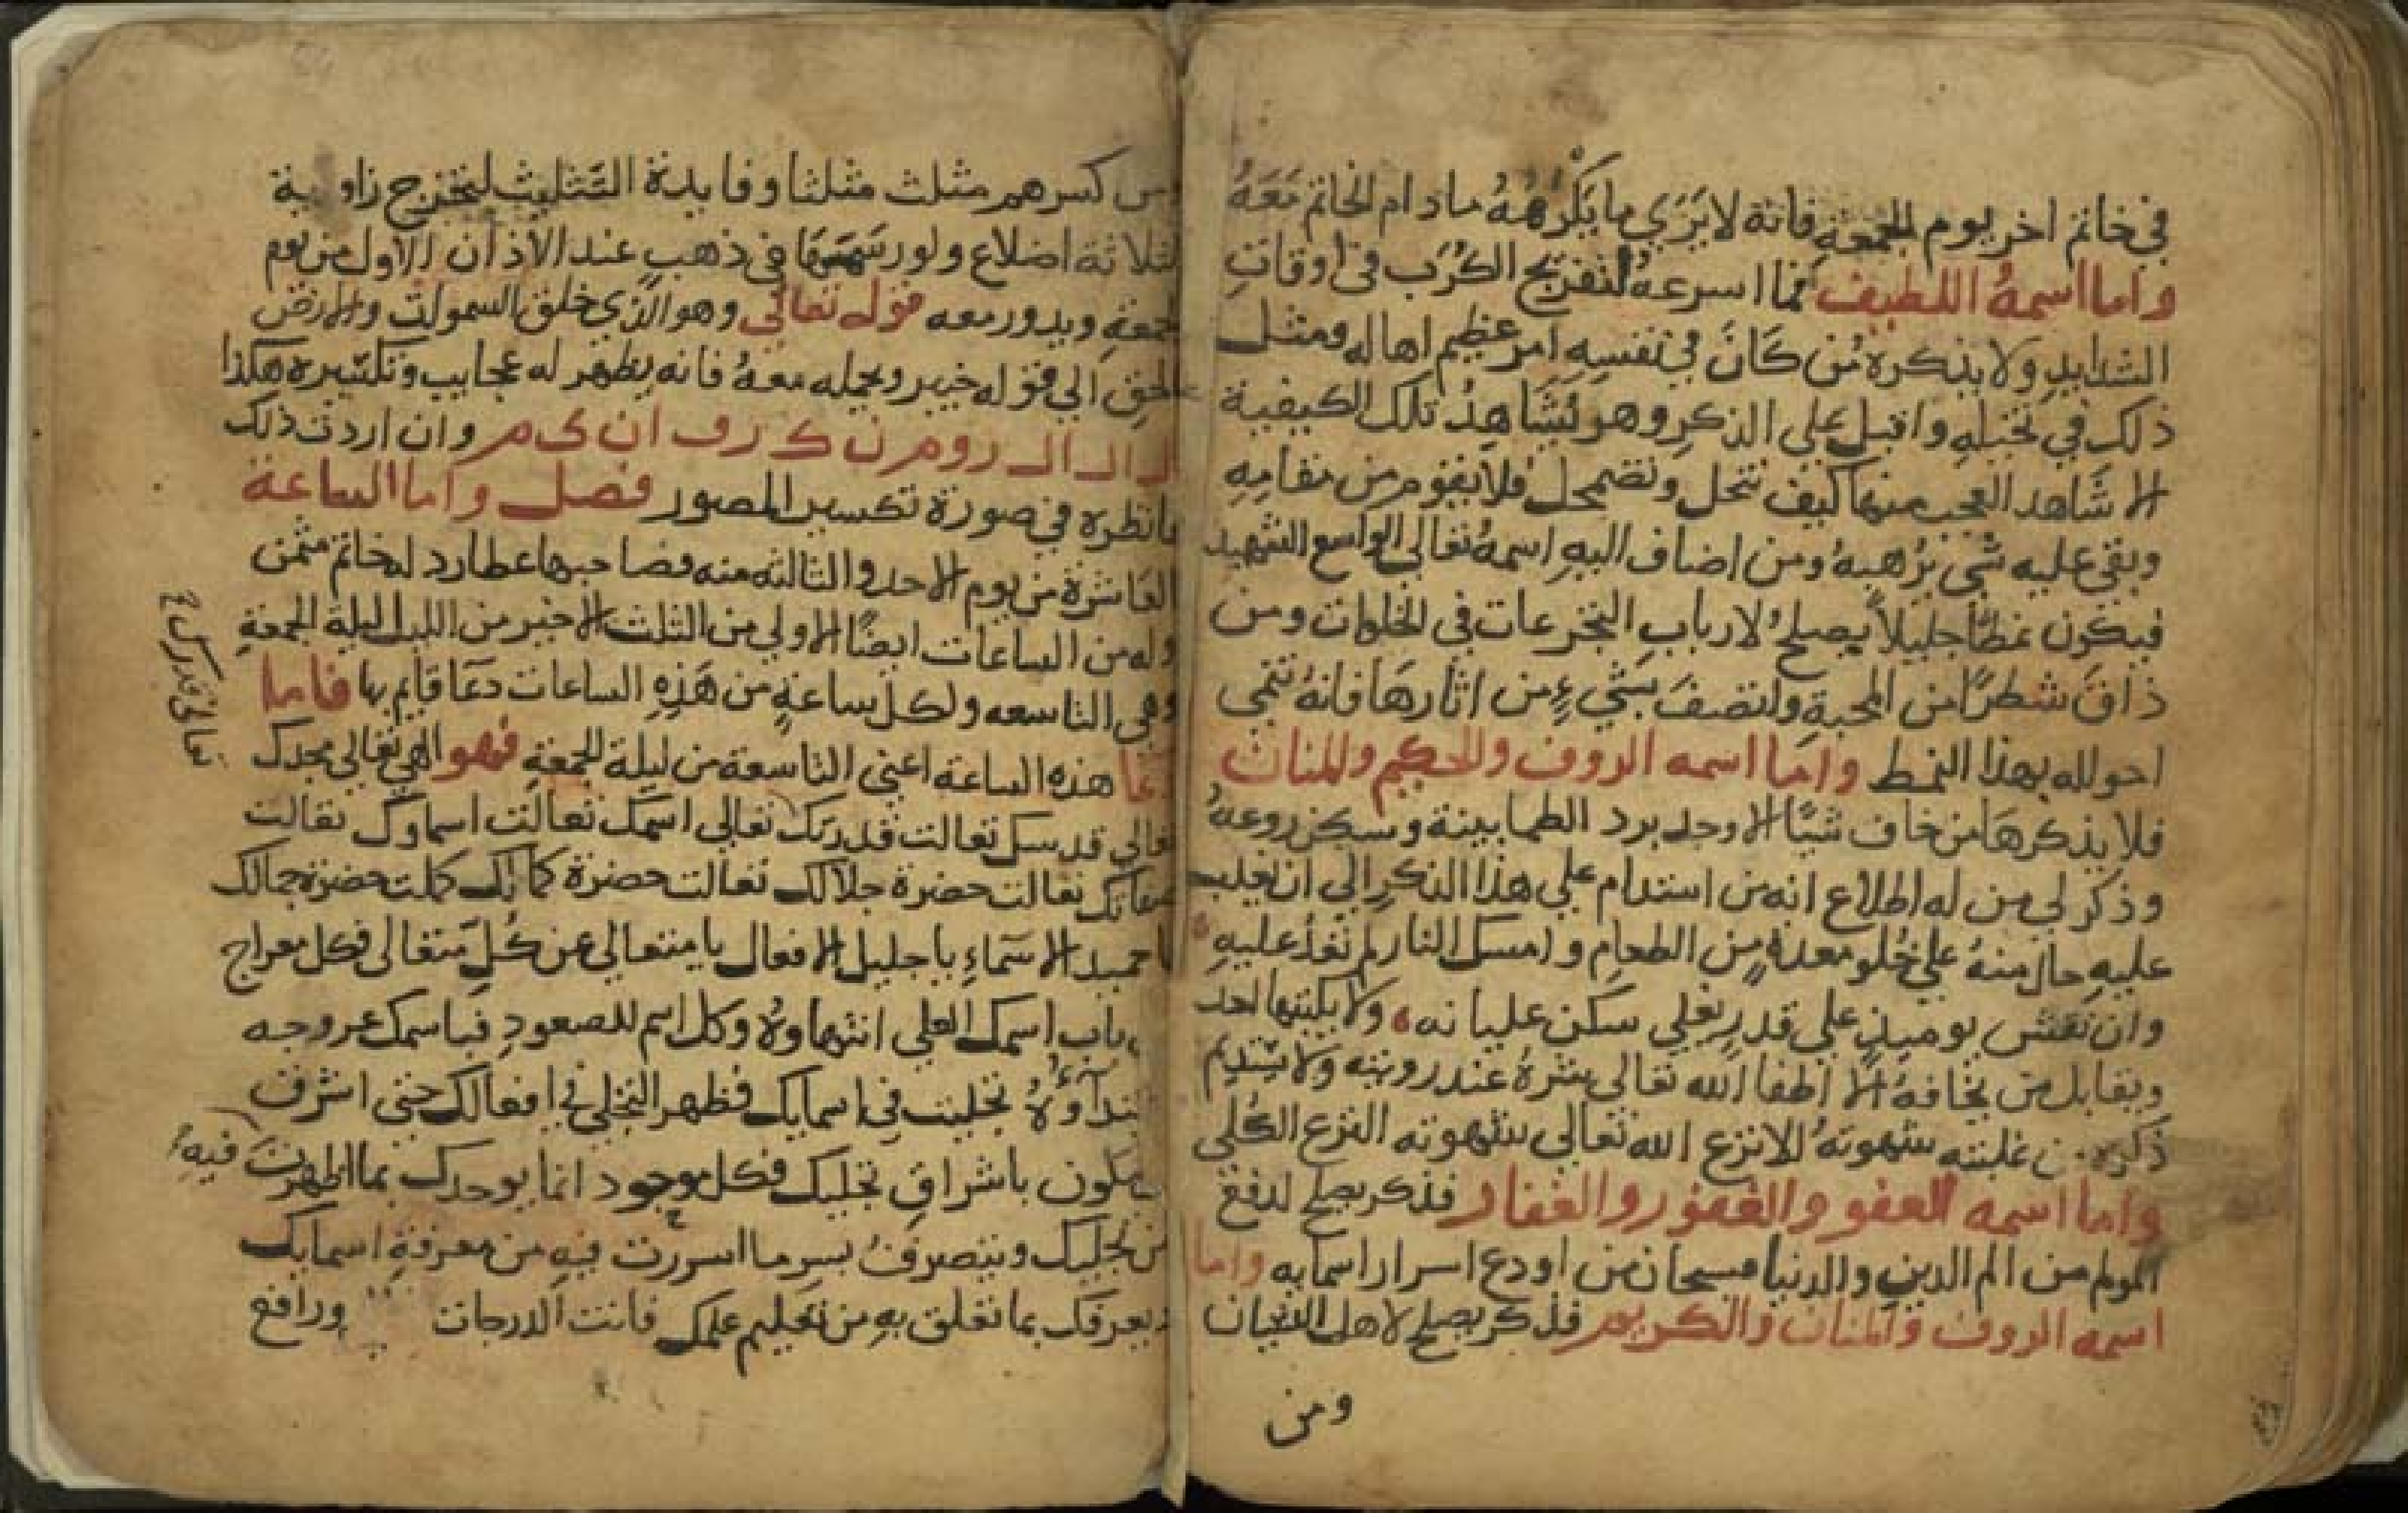 في خاتم اخر يوم الجمعة فانه لا يَرَي ما يَكْرهُهُ مادام الخاتم مَعَهُ
واما اسمهُ اللطيف فما اسرعهُ لتفريج الكُرَب في اوقاتِ
الشدايدِ ولا يذكره مَن كَانَ في نفسِهِ امر عظيم اهاله ومثل
ذلك في تخيلهِ واقبل علي الذكرِ وهو يُشَاهِدُ تلك الكيفية
الا شَاهد العجب منها كيف تنحل وتضمحل فلا يقوم من مقامِهِ
وبقي عليه شي يرُهبهُ ومن اضاف اليهِ اسمهُ تعالي الواسع الشهيد
فيكون نمطًا جليلاً يصلح لارباب التجرعات في الخلوات ومن
ذاقَ شطرًا من المحبةِ واتصفَ بشيءٍ من اثارهَا فانهُ تنمي
احواله بهذا النمط واما اسمه الروف والحكيم والمنان
فلا يذكرهَا من خاف شيًا الا وجد برد الطمانينة وسكن روعهُ
وذكر لي من له اطلاع انه من استدام علي هذا الذكر الي ان يغلب
عليهِ حال منهُ علي خُلو معدةٍ من الطعام وامسك النار لم تَعْدُ عليهِ
وان تنفس يوميذٍ علي قدرٍ يغلي سكن غليانه ولا يكتبها احد
ويقابل من يخافهُ الا اطفا الله تعالي شرهُ عند رويته ولا يستديم
ذكره من غلبته شهوتهُ الا نزع الله تعالي شهوته النزع الكلي
واما اسمه العفو والغفور والغفار فذكر يصلح لدفع
المولم من الم الدين والدنيا فسبحان من اودع اسرار اسمايه واما
اسمه الروف والمنان والكريم فذكر يصلح لاهل
ومن
كسرهم مثلث مثلثا وفايدة التثليث ليخرج زاوية
ثلاثة اضلاع ولو رسَمهَا في ذهبٍ عند الاذان الاول من يوم
الجمعةِ ويدور معه قوله تعالي وهو الذي خلق السموات والارض
بالحق الي قوله خبير ويحمله معهُ فانه يظهر له عجايب وتكسيره هكذا
ال ال ال ر و م ن ك ر و ف ان ي م وان اردت ذلك
فانظره في صورة تكسير المصور فصل واما الساعة
العاشرة من يوم الاحد والثالثه منه فصاحبها عطارد له خاتم مثمن
وله من الساعات ايضًا الاولي من الثلث الاخير من الليل ليلة الجمعةِ
وهي التاسعه ولكل ساعةٍ من هَذِهِ الساعات دعَا قايم بها فاما
دعا هذه الساعة اعني التاسعة من ليلة الجمعةِ فهو الهي تعالي مجدك
تعالي قدسك تعالت قدرتك تعالي اسمك تعالت اسماوك تعالت
صفاتك تعالت حضرة جلالك تعالت حضرة كمالك كملت حضرة جمالك
يا حميد الاسَماءِ يا جليل الافعال يا متعالي عن كُلِّ متعالي فكل معراج
باب اسمك العلي انتهاوهُ وكل اسم للصعودِ فباسمك عروجه
ابتدآوهُ تجليت في اسمايك فظهر التجلي في افعالك حتي اشرقت
باشراقِ تجليك فكل موجود انما يوحدك بما اظهرت فيهِ
من تجليك ويتصرف بسر ما اسررت فيهِ من معرفةِ اسمايك
ويعرفك بما تعلق بهِ من تعليم علمك فانت الدرجات ورافع